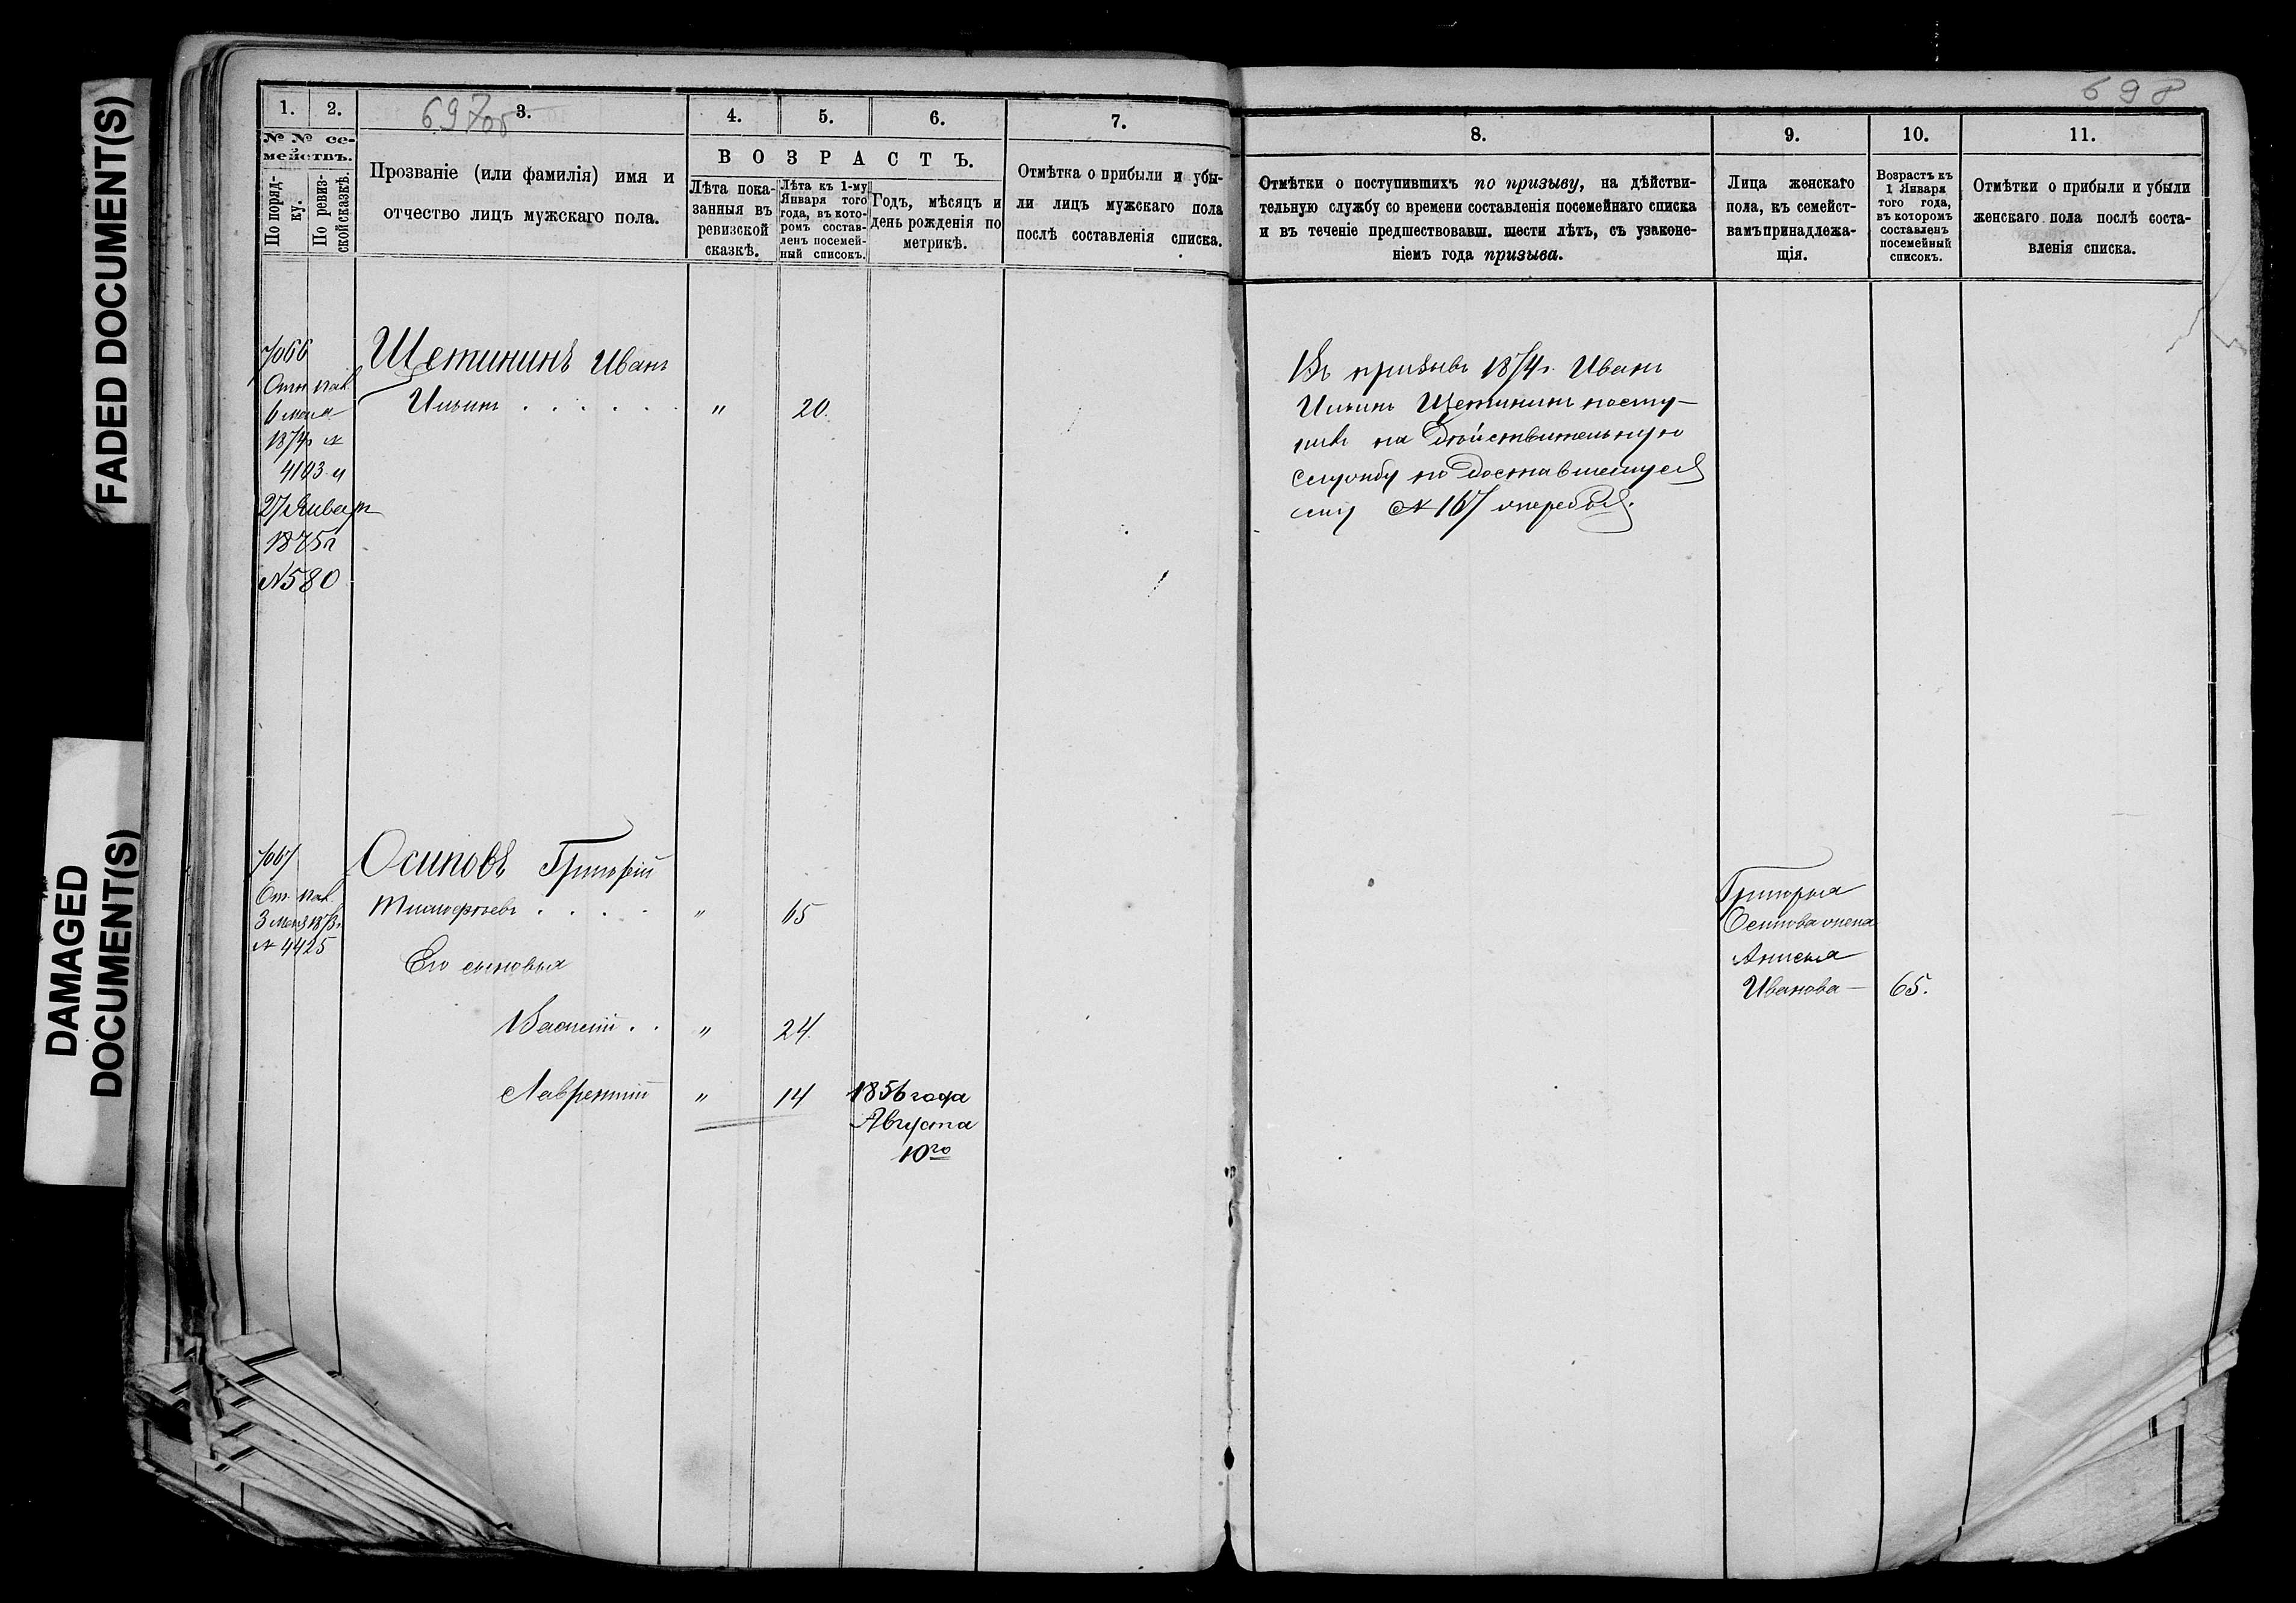 FADED DOCUMENT(S)
DAMAGED
DOCUMENT(S)
697об
698
1. 2. 3. 4. 5. 6. 7.
№ № се-
мействъ.
По поряд-
ку.
По ревиз-
ской сказкѣ.
Прозваніе (или фамилія) имя и
отчество лицъ мужскаго пола.
ВОЗРАСТЪ.
Лѣта пока-
занныя въ
ревизской
сказкѣ.
Лѣта къ 1-му
Января того
года, въ кото-
ромъ состав-
ленъ посемей-
ный списокъ.
Годъ, мѣсяцъ и
день рожденія по
метрикѣ.
Отмѣтка о прибыли и убы-
ли лицъ мужскаго пола
послѣ составленія списка.
8. 9. 10. 11.
Отмѣтки о поступившихъ по призыву, на дѣйстви-
тельную службу со времени составленія посемейнаго списка
и въ теченіе предшествовавш. шести лѣтъ, съ узаконе-
ніемъ года призыва.
Лица женскаго
пола, къ семейст-
вамъ принадлежа-
щія.
Возрастъ къ
1 Января
того года,
въ которомъ
составленъ
посемейный
списокъ.
Отмѣтки о прибыли и убыли
женскаго пола послѣ соста-
вленія списка.
7066
6 мая
1874 №
4103 и
27 Января
1875г
№580
Щетининъ Иванъ
Ильинъ . . . . . . " 20.
Въ призывъ 1874г. Иванъ
Ильинъ Щетининъ посту-
пилъ на Дѣйствительную
службу по Доставшемуся
ему № 167 жеребью.
7067
3 Мая
№ 4425
Осиповъ Григорій
Тимофѣевъ . . . . " 65
Его сыновья
Василій . . " 24.
Лаврентій " 14 1856 года
Августа
10го
Григорья
Осипова жена
Анисья
Иванова — 65.